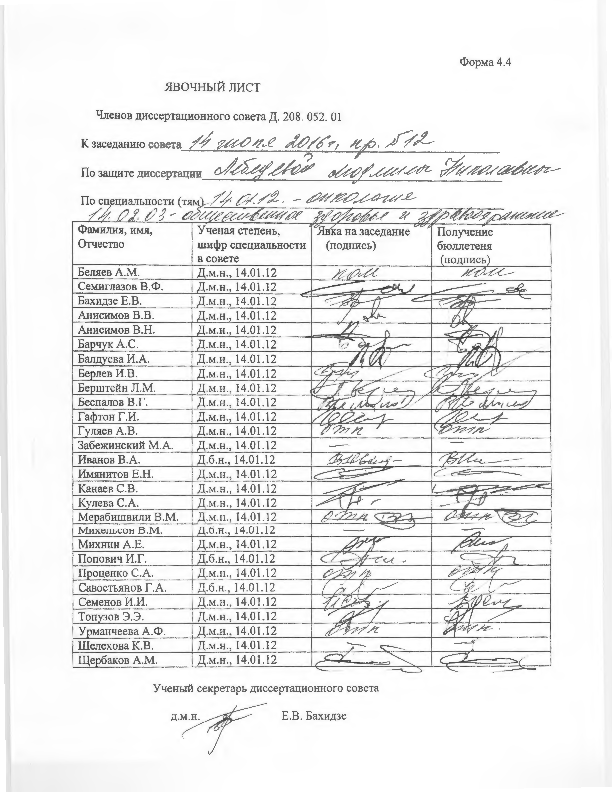 Форма 4.4
ЯВОЧНЫЙ ЛИСТ
Членов диссертационного совета Д. 208. 052. 01
К заседанию совета 14 июня 2016 г, пр. №12
По защите диссертации Лебедевой Людмилы Николаевны
По специальности (тям) 14.01.12. - онкология
14.02.03 - общественное здоровье и здравоохранение
Фамилия, имя, Отчество Ученая степень, шифр специальности в совете Явка на заседание (подпись) Получение бюллетеня (подпись)
Беляев А.М. Д.м.н., 14.01.12 ком ком
Семиглазов В.Ф. Д.м.н., 14.01.12
Бахидзе Е.В. Д.м.н., 14.01.12
Анисимов В.В. Д.м.н., 14.01.12
Анисимов В.Н. Д.м.н., 14.01.12
Барчук А.С. Д.м.н., 14.01.12
Балдуева И.А. Д.м.н., 14.01.12
Берлев И.В. Д.м.н., 14.01.12
Берштейн Л.М. Д.м.н., 14.01.12
Беспалов В.Г. Д.м.н., 14.01.12
Гафтон Г.И. Д.м.н., 14.01.12
Гуляев А.В. Д.м.н., 14.01.12 отп отп
Забежинский М.А. Д.м.н., 14.01.12 — —
Иванов В.А. Д.б.н., 14.01.12
Имянитов Е.Н. Д.м.н., 14.01.12
Канаев С.В. Д.м.н., 14.01.12
Кулева С.А. Д.м.н., 14.01.12
Мерабишвили В.М. Д.м.н., 14.01.12 отп отп
Михельсон В.М. Д.б.н., 14.01.12 — —
Михнин А.Е. Д.м.н., 14.01.12
Попович И.Г. Д.б.н., 14.01.12
Проценко С.А. Д.м.н., 14.01.12 отп отп
Савостьянов Г.А. Д.б.н., 14.01.12
Семенов И.И. Д.м.н., 14.01.12
Топузов Э.Э. Д.м.н., 14.01.12
Урманчеева А.Ф. Д.м.н., 14.01.12 отп отп.
Шелехова К.В. Д.м.н., 14.01.12 — —
Щербаков А.М. Д.м.н., 14.01.12
Ученый секретарь диссертационного совета
д.м.н. Е.В. Бахидзе